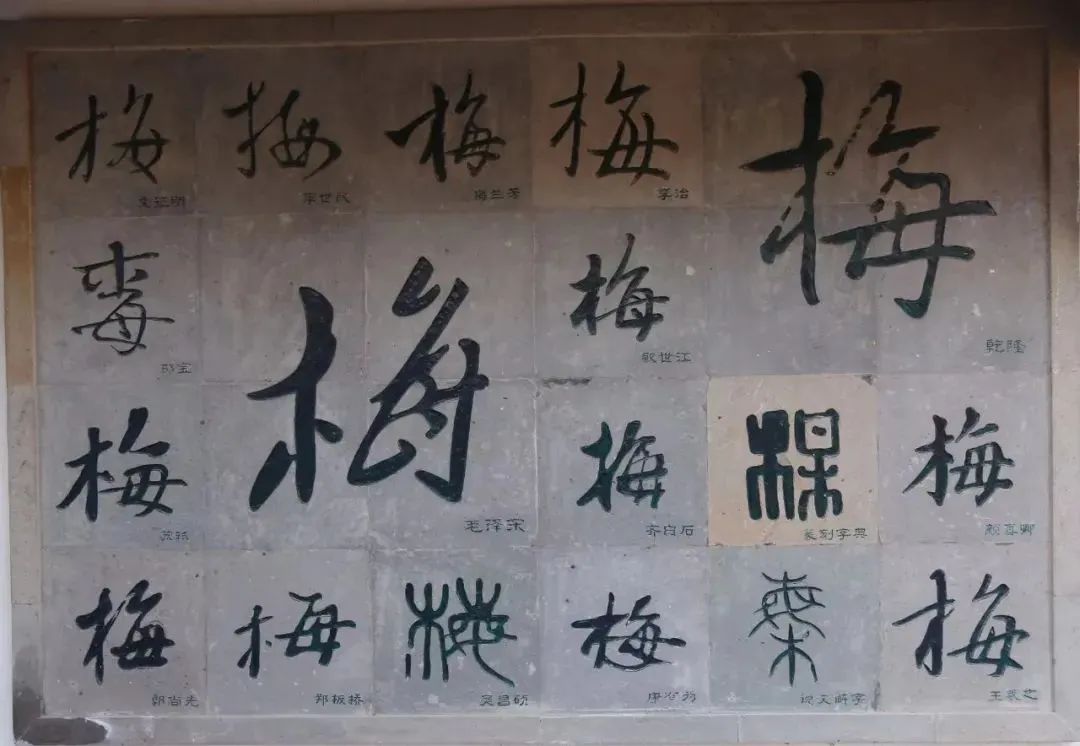 梅
文征明
梅
李世民
梅
梅兰芳
梅
李治
梅
乾隆
梅
邵宝
梅
毛泽东
梅
殷世江
梅
苏轼
梅
齐白石
梅
篆刻字典
梅
颜真卿
梅
郭尚先
梅
郑板桥
梅
吴昌硕
梅
唐公为
梅
说文解字
梅
王羲之